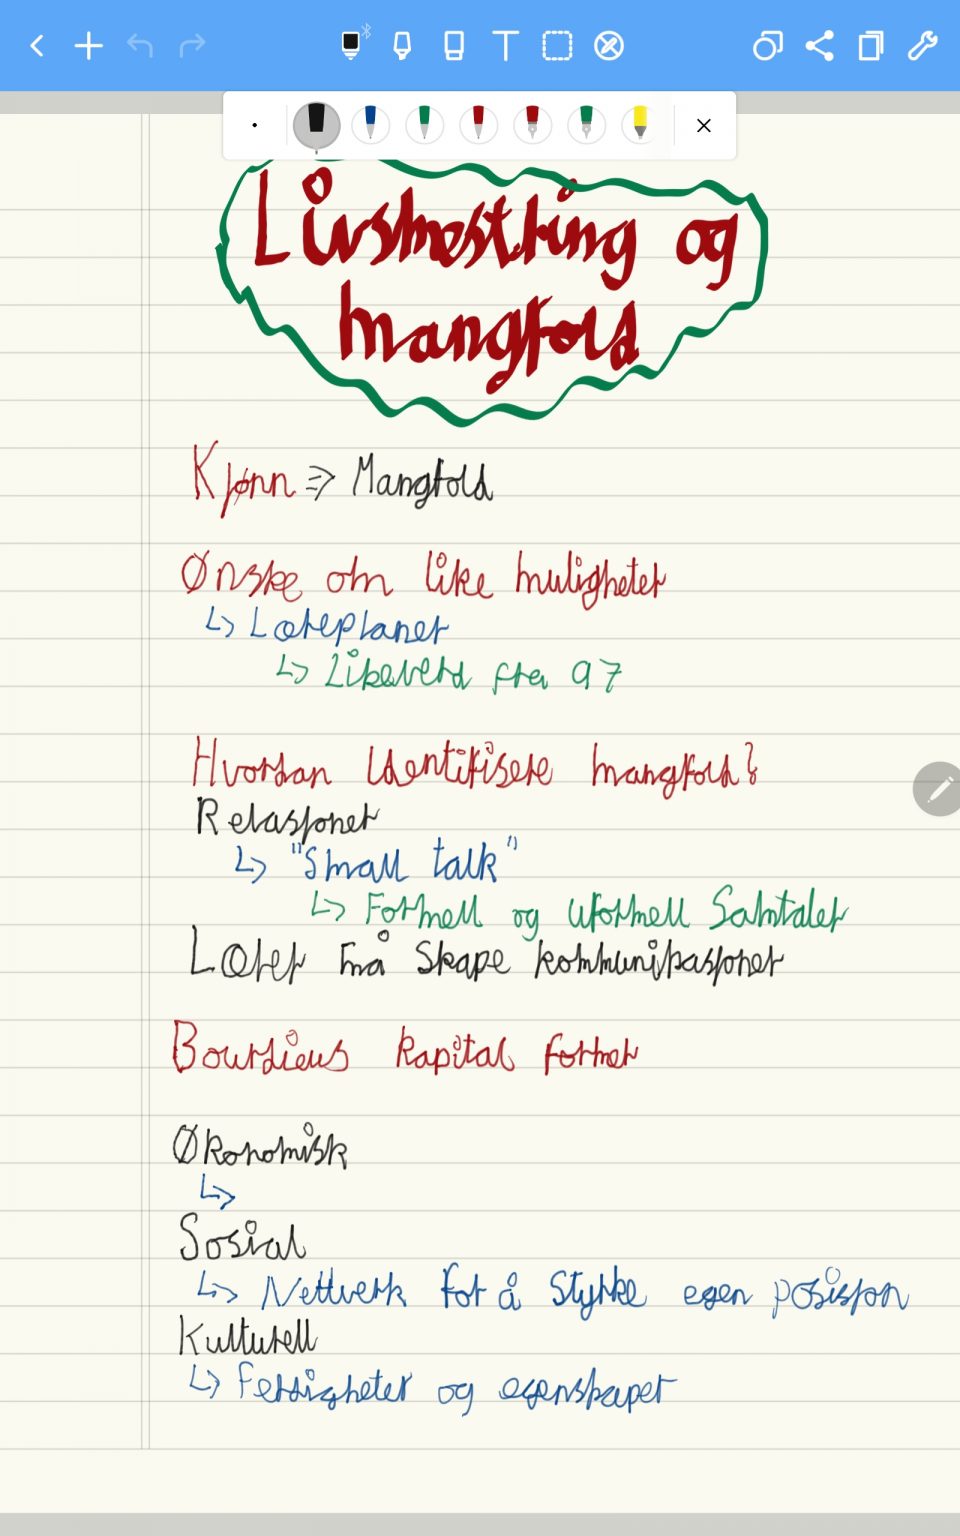 Livsmestring og
mangfold
Kjønn => Mangfold
Ønske om like muligheter
↳ Læreplaner
↳ Likeverd fra 97
Hvordan identifisere mangfold?
Relasjoner
↳ "Small talk"
↳ Formell og uformell samtaler
Lærer må skape kommunikasjoner
Bourdieus kapital former
Økonomisk
↳
Sosial
↳ Nettverk for å styrke egen posisjon
Kulturell
↳ Ferdigheter og egenskaper